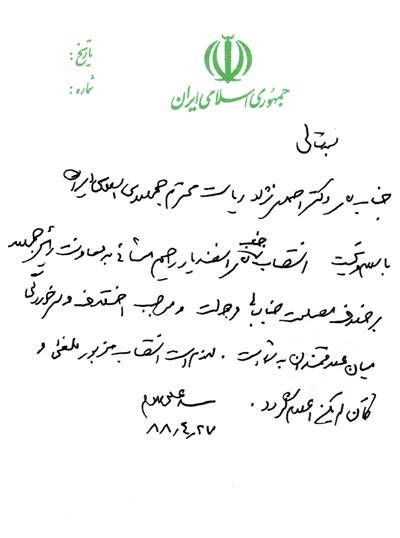 تاریخ :
شماره :
جمهوری اسلامی ایران
بسمه تعالی
جناب آقای دکتر احمدی نژاد ریاست محترم جمهوری اسلامی ایران
با سلام و تحیت انتصاب جناب آقای اسفندیار رحیم مشائی به معاونت رئیس جمهور
بر خلاف مصلحت جنابعالی و دولت و موجب اختلاف و سرخوردگی
میان علاقمندان به شما است . لازم است انتصاب مزبور ملغی و
کان لم یکن اعلام گردد .
سید علی خامنه‌ای
۸۸٫۴٫۲۷